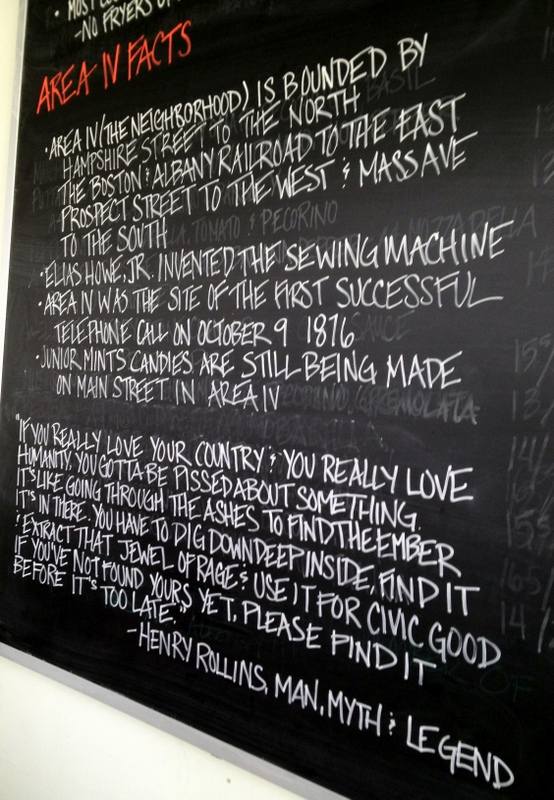 · MOST
-NO FRYERS
AREA IV FACTS
· AREA IV (THE NEIGHBORHOOD) IS BOUNDED BY
HAMPSHIRE STREET TO THE NORTH
THE BOSTON & ALBANY RAILROAD TO THE EAST
PROSPECT STREET TO THE WEST & MASS AVE
TO THE SOUTH
· ELIAS HOWE, JR. INVENTED THE SEWING MACHINE
· AREA IV WAS THE SITE OF THE FIRST SUCCESSFUL
TELEPHONE CALL ON OCTOBER 9 1876
· JUNIOR MINTS CANDIES ARE STILL BEING MADE
ON MAIN STREET IN AREA IV
"IF YOU REALLY LOVE YOUR COUNTRY & YOU REALLY LOVE
HUMANITY, YOU GOTTA BE PISSED ABOUT SOMETHING.
IT'S LIKE GOING THROUGH THE ASHES TO FIND THE EMBER
IT'S IN THERE. YOU HAVE TO DIG DOWN DEEP INSIDE, FIND IT
& EXTRACT THAT JEWEL OF RAGE & USE IT FOR CIVIC GOOD
IF YOU'VE NOT FOUND YOURS YET, PLEASE FIND IT
BEFORE IT'S TOO LATE."
-HENRY ROLLINS, MAN, MYTH & LEGEND